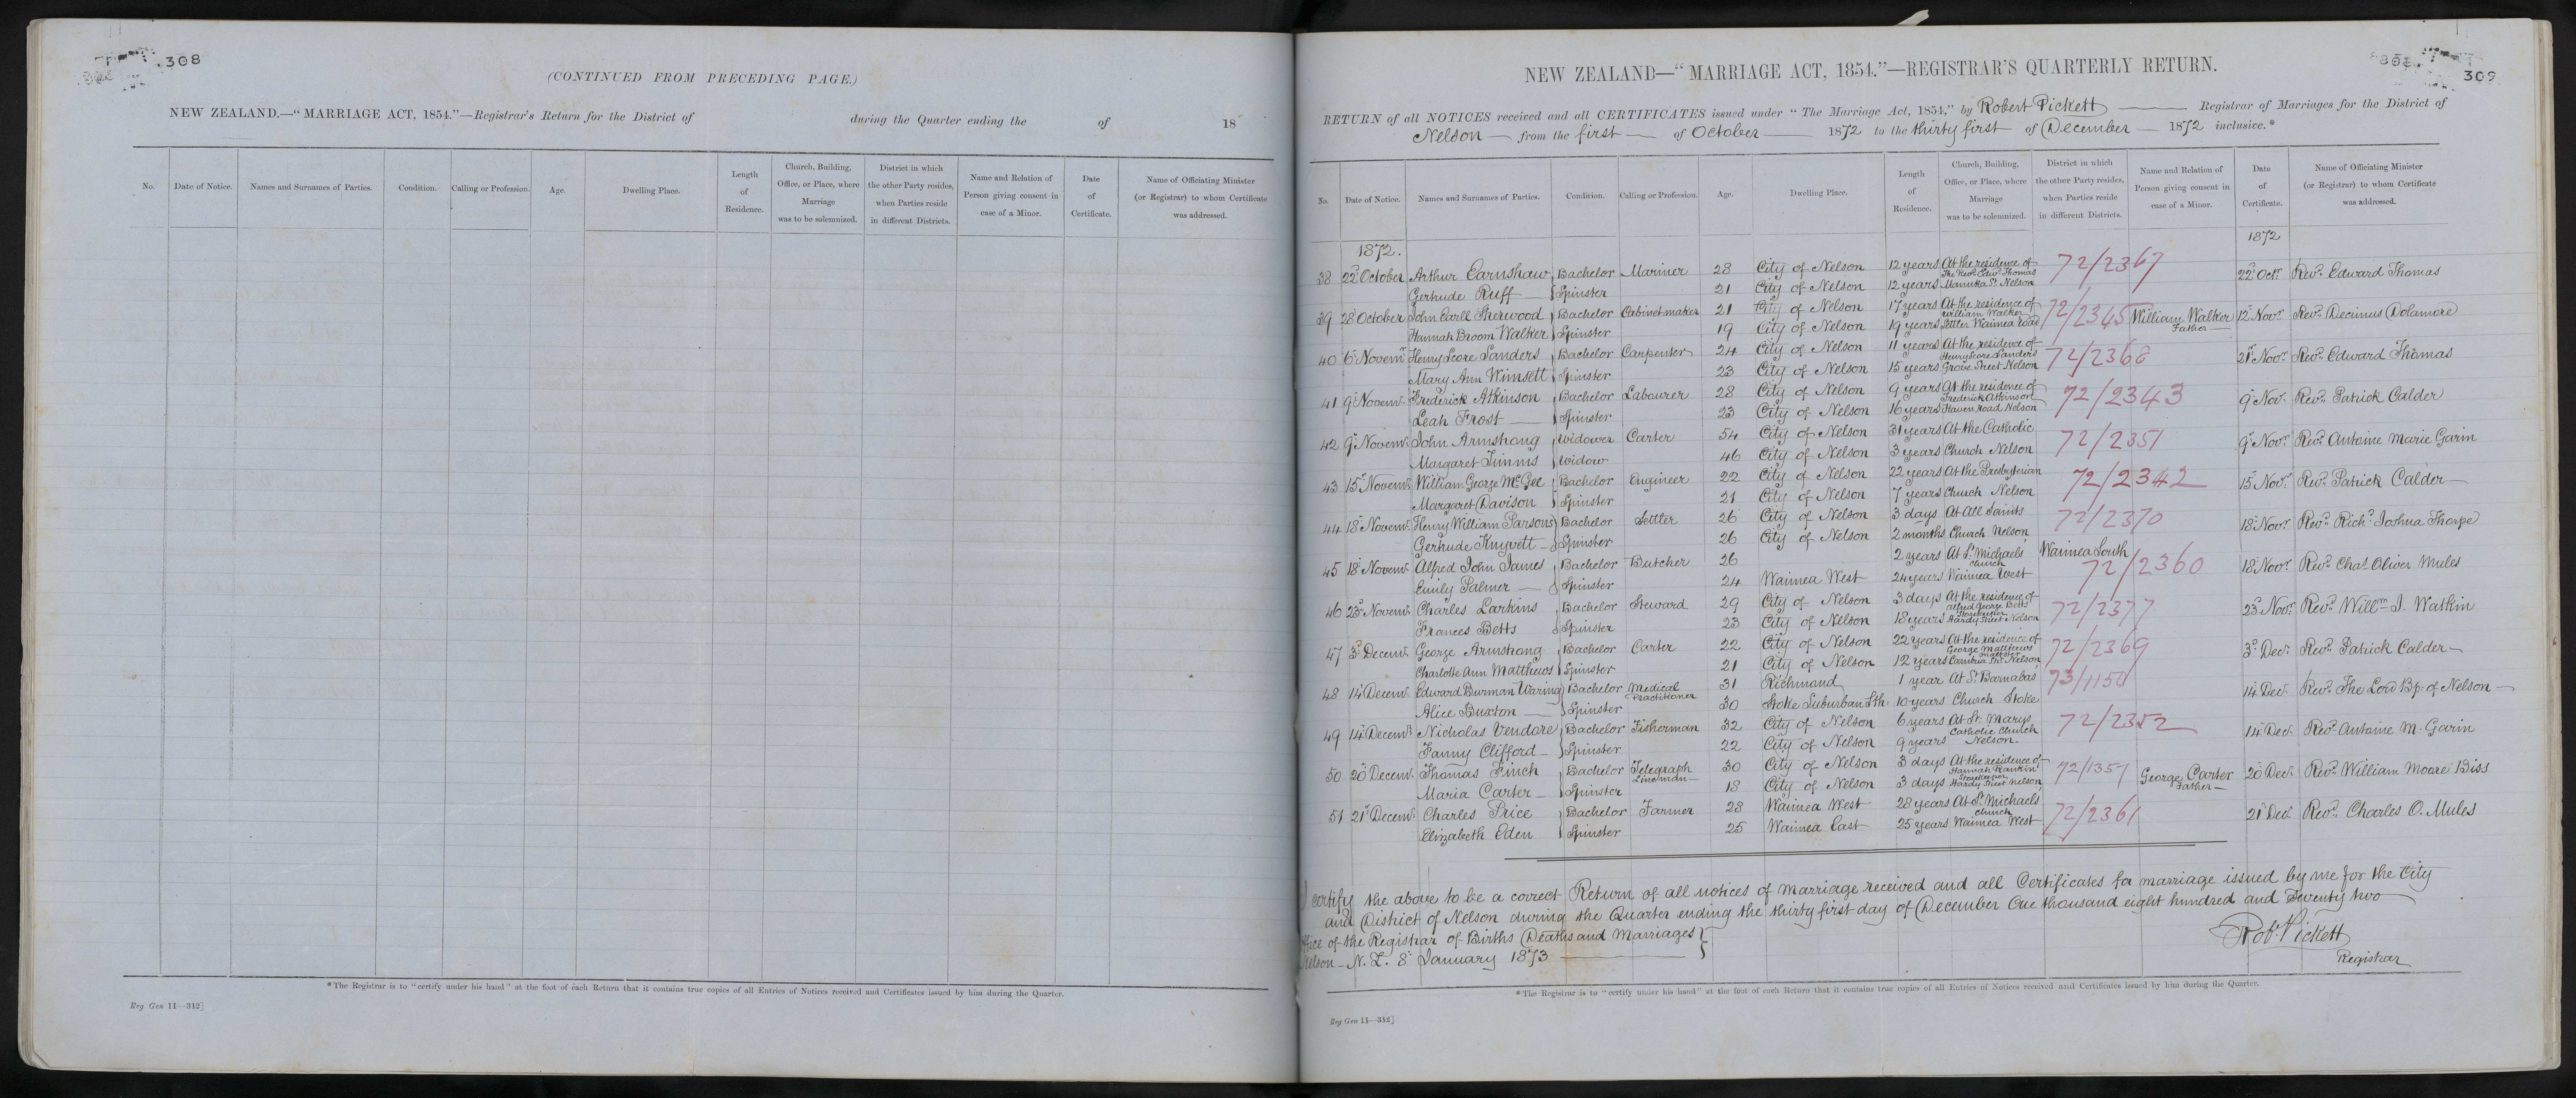 308
(CONTINUED FROM PRECEDING PAGE.)
NEW ZEALAND.—"MARRIAGE ACT, 1854."—Registrar's Return for the District of during the Quarter ending the of 18
No. Date of Notice. Names and Surnames of Parties. Condition. Calling or Profession. Age. Dwelling Place. Length of Residence. Church, Building, Office, or Place, where Marriage was to be solemnized. District in which the other Party resides, when Parties reside in different Districts. Name and Relation of Person giving consent in case of a Minor. Date of Certificate. Name of Officiating Minister (or Registrar) to whom Certificate was addressed.
*The Registrar is to "certify under his hand" at the foot of each Return that it contains true copies of all Entries of Notices received and Certificates issued by him during the Quarter.
Reg Gen 11—312]
309
NEW ZEALAND—"MARRIAGE ACT, 1854."—REGISTRAR'S QUARTERLY RETURN.
RETURN of all NOTICES received and all CERTIFICATES issued under "The Marriage Act, 1854," by Robert Pickett Registrar of Marriages for the District of
Nelson from the first of October 1872 to the thirty first of December 1872 inclusive.*
No. Date of Notice. Names and Surnames of Parties. Condition. Calling or Profession. Age. Dwelling Place. Length of Residence. Church, Building, Office, or Place, where Marriage was to be solemnized. District in which the other Party resides, when Parties reside in different Districts. Name and Relation of Person giving consent in case of a Minor. Date of Certificate. Name of Officiating Minister (or Registrar) to whom Certificate was addressed.
1872. 1872
38 22d October Arthur Earnshaw Bachelor Mariner 28 City of Nelson 12 years At the residence of The Revd. Edwd. Thomas 72/2367 22d Octr. Revd. Edward Thomas
Gertrude Ruff Spinster 21 City of Nelson 12 years Manuka St. Nelson
39 28 October John Earll Sherwood Bachelor Cabinetmaker 21 City of Nelson 17 years At the residence of William Walker 72/2345 William Walker Father 12 Novr. Revd. Decimus Dolamore
Hannah Broom Walker Spinster 19 City of Nelson 19 years Settler Waimea Road
40 6 Novemr. Henry Score Sanders Bachelor Carpenter 24 City of Nelson 11 years At the residence of Henry Score Sanders 72/2368 21st Novr. Revd. Edward Thomas
Mary Ann Wimsett Spinster 23 City of Nelson 15 years Grove Street Nelson
41 9 Novemr. Frederick Atkinson Bachelor Labourer 28 City of Nelson 9 years At the residence of Frederick Atkinson 72/2343 9 Novr. Revd. Patrick Calder
Leah Frost Spinster 23 City of Nelson 16 years Haven Road Nelson
42 9 Novemr. John Armstrong Widower Carter 54 City of Nelson 31 years At the Catholic 72/2351 9 Novr. Revd. Antoine Marie Garin
Margaret Timms Widow 46 City of Nelson 3 years Church Nelson
43 15 Novemr. William George McGee Bachelor Engineer 22 City of Nelson 22 years At the Presbyterian 72/2342 15 Novr. Revd. Patrick Calder
Margaret Davison Spinster 21 City of Nelson 7 years Church Nelson
44 18 Novemr. Henry William Parsons Bachelor Settler 26 City of Nelson 3 days At All Saints 72/2370 18 Novr. Revd. Richd. Joshua Thorpe
Gertrude Knyvett Spinster 26 City of Nelson 2 months Church Nelson
45 18 Novemr. Alfred John James Bachelor Butcher 26 2 years At St. Michaels Church Waimea South 18 Novr. Revd. Chas. Oliver Mules
Emily Palmer Spinster 24 Waimea West 24 years Waimea West 72/2360
46 23d Novemr. Charles Larkins Bachelor Steward 29 City of Nelson 3 days At the residence of Alfred George Betts 72/2377 23d Novr. Revd. Willm. J. Watkin
Frances Betts Spinster 23 City of Nelson 18 years Hardy Street Nelson
47 3d Decemr. George Armstrong Bachelor Carter 22 City of Nelson 22 years At the residence of George Matthews 72/2369 3d Decr. Revd. Patrick Calder
Charlotte Ann Matthews Spinster 21 City of Nelson 12 years Cambria St. Nelson
48 14 Decemr. Edward Burman Waring Bachelor Medical Practitioner 31 Richmond 1 year At St. Barnabas 73/1150 14 Decr. Revd. The Lord Bp. of Nelson
Alice Buxton Spinster 30 Stoke Suburban Sth. 10 years Church Stoke
49 14 Decemr. Nicholas Vendore Bachelor Fisherman 32 City of Nelson 6 years At St. Marys 72/2352 14 Decr. Revd. Antoine M. Garin
Fanny Clifford Spinster 22 City of Nelson 9 years Catholic Church Nelson.
50 20 Decemr. Thomas Finch Bachelor Telegraph Lineman 30 City of Nelson 3 days At the residence of Hannah Rankin Storekeeper 72/1357 George Carter Father 20 Decr. Revd. William Moore Biss
Maria Carter Spinster 18 City of Nelson 3 days Hardy Street Nelson
51 21st Decemr. Charles Price Bachelor Farmer 28 Waimea West 28 years At St. Michaels Church 72/2361 21st Decr. Revd. Charles O. Mules
Elizabeth Eden Spinster 25 Waimea East 25 years Waimea West
I certify the above to be a correct Return of all notices of marriage received and all Certificates for marriage issued by me for the City
and District of Nelson during the Quarter ending the thirty first day of December One thousand eight hundred and Seventy two
Office of the Registrar of Births Deaths and Marriages
Nelson - N.Z. 8 January 1873
Robt Pickett
Registrar
*The Registrar is to "certify under his hand" at the foot of each Return that it contains true copies of all Entries of Notices received and Certificates issued by him during the Quarter.
Reg Gen 11—312]